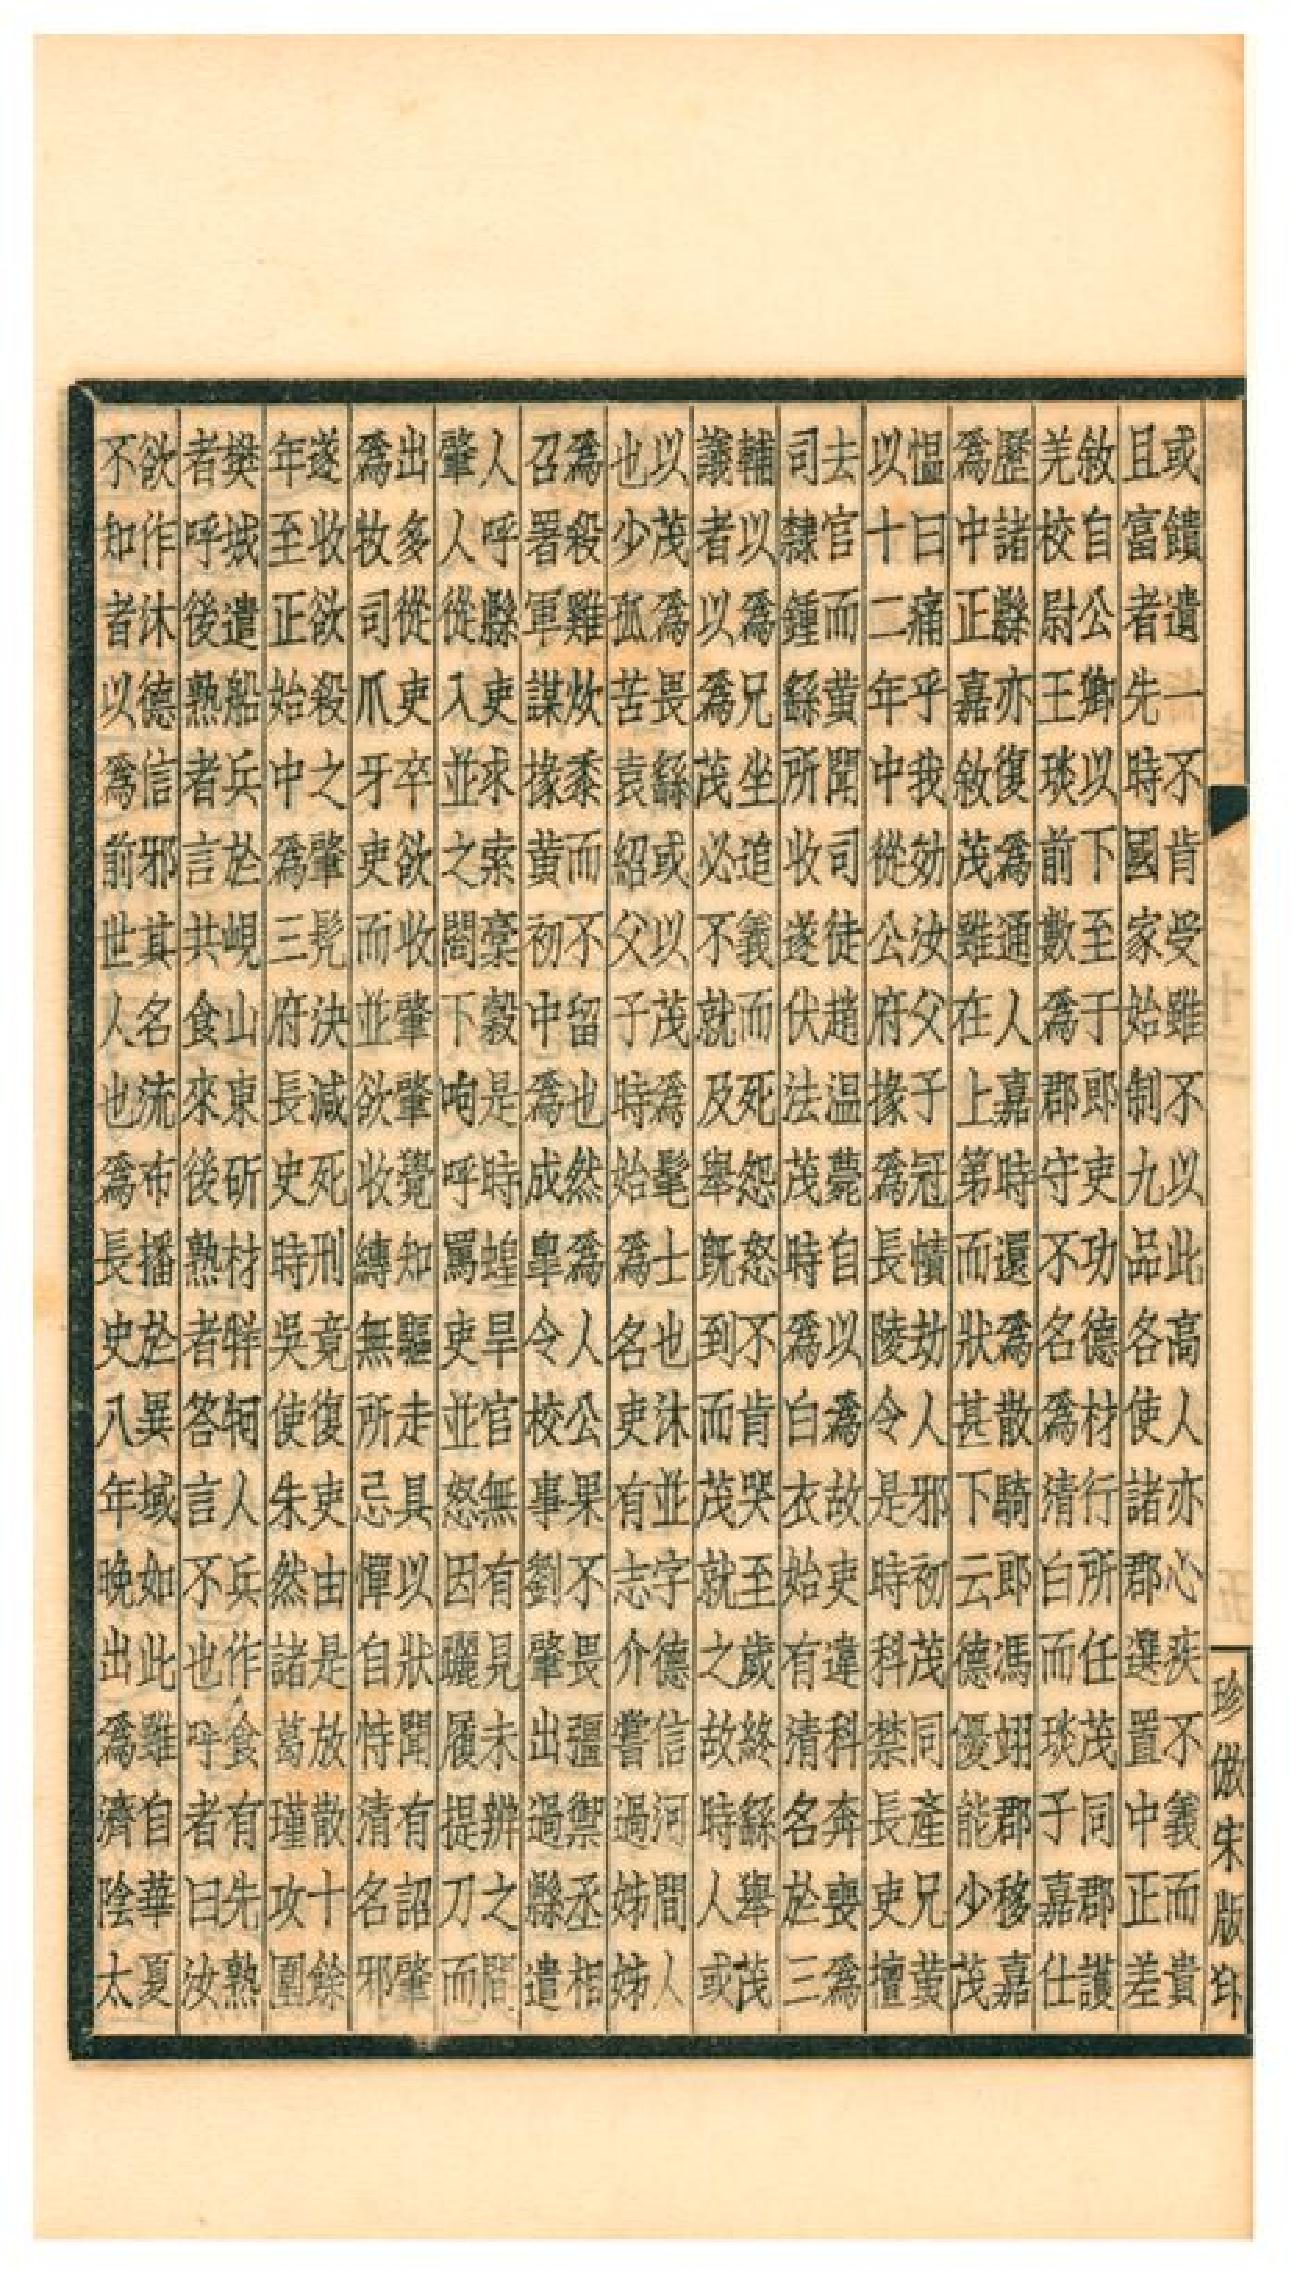 或饋遺一不肯受雖不以此高人亦心疾不義而貴
且富者先時國家始制九品各使諸郡選置中正差
敘自公卿以下至于郎吏功德材行所任茂同郡護
羌校尉王琰前數爲郡守不名爲清白而琰子嘉仕
歷諸縣亦復爲通人嘉時還爲散騎郎馮翊郡移嘉
爲中正嘉敘茂雖在上第而狀甚下云德優能少茂
愠曰痛乎我効汝父子冠幘劫人邪初茂同產兄黄
以十二年中從公府掾爲長陵令是時科禁長吏擅
去官而黄聞司徒趙温薨自以爲故吏違科奔喪爲
司隸鍾繇所收遂伏法茂時爲白衣始有清名於三
輔以爲兄坐追義而死怨怒不肯哭至歲終繇舉茂
議者以爲茂必不就及舉既到而茂就之故時人或
以茂爲畏繇或以茂爲髦士也沐並字德信河間人
也少孤苦袁紹父子時始爲名吏有志介嘗過姊姊
爲殺雞炊黍而不留也然爲人公果不畏彊禦丞相
召署軍謀掾黄初中爲成臯令校事劉肇出過縣遣
人呼縣吏求索槀穀是時蝗旱官無有見未辨之間
肇人從入並之閤下呴呼罵吏並怒因躧履提刀而
出多從吏卒欲收肇肇覺知驅走具以狀聞有詔肇
爲牧司爪牙吏而並欲收縛無所忌憚自恃清名邪
遂收欲殺之肇髠決減死刑竟復吏由是放散十餘
年至正始中爲三府長史時吳使朱然諸葛瑾攻圍
樊城遣船兵於峴山東斫材牂牁人兵作食有先熟
者呼後熟者言共食來後熟者答言不也呼者曰汝
欲作沐德信邪其名流布播於異域如此雖自華夏
不知者以爲前世人也爲長史八年晚出爲濟陰太
珍倣宋版印